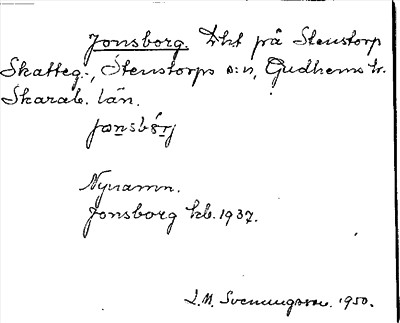 Jonsborg. Dht på Stenstorp
Skatteg., Stenstorps s:n, Gudhems h.
Skarab. län.
Nynamn.
Jonsborg kb. 1937.
L.M. Svenungsson. 1950.